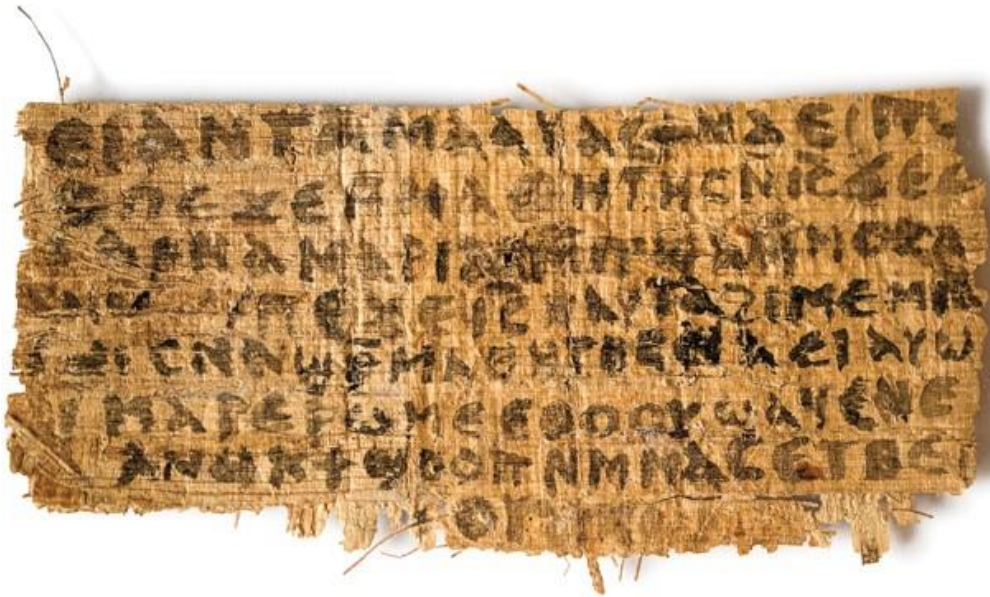 ⲉⲓ ⲁⲛ ⲧⲁⲙⲁⲁⲩ ⲁⲥϯ ⲛⲁⲉⲓ ⲡⲱ
ⲡⲉϫⲉ ⲙⲙⲁⲑⲏⲧⲏⲥ ⲛⲓ̅ⲥ̅ ϫⲉ ⲥ
ⲁⲣⲛⲁ ⲙⲁⲣⲓⲁⲙ ⲙ̅ⲡϣⲁ ⲙⲙⲟⲥ ⲁ
ⲡⲉϫⲉ ⲓ̅ⲥ̅ ⲛⲁⲩ ⲧⲁϩⲓⲙⲉ ⲙⲛ̅
ⲥⲛⲁϣⲣ̅ⲙⲁⲑⲏⲧⲏⲥ ⲛⲁⲉⲓ ⲁⲩⲱ
ⲓ ⲙⲁⲣⲉⲣⲱⲙⲉ ⲉⲑⲟⲟⲩ ϣⲁϥⲉ ⲛⲉ
ⲁⲛⲟⲕ ϯϣⲟⲟⲡ ⲛⲙⲙⲁⲥ ⲉⲧⲃⲉ